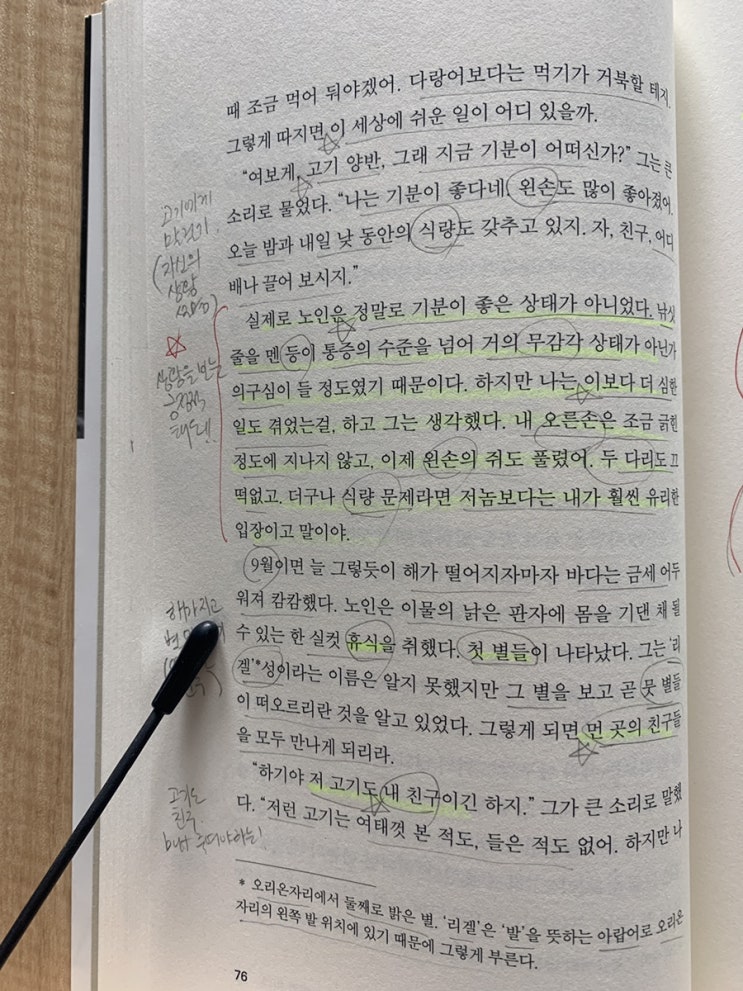 때 조금 먹어 둬야겠어. 다랑어보다는 먹기가 거북할 테지.
그렇게 따지면 이 세상에 쉬운 일이 어디 있을까.
"여보게, 고기 양반, 그래 지금 기분이 어떠신가?" 그는 큰
소리로 물었다. "나는 기분이 좋다네. 왼손도 많이 좋아졌어.
오늘 밤과 내일 낮 동안의 식량도 갖추고 있지. 자, 친구, 어디
배나 끌어 보시지."
실제로 노인은 정말로 기분이 좋은 상태가 아니었다. 낚싯
줄을 멘 등이 통증의 수준을 넘어 거의 무감각 상태가 아닌가
의구심이 들 정도였기 때문이다. 하지만 나는 이보다 더 심한
일도 겪었는걸, 하고 그는 생각했다. 내 오른손은 조금 긁힌
정도에 지나지 않고, 이제 왼손의 쥐도 풀렸어. 두 다리도 끄
떡없고. 더구나 식량 문제라면 저놈보다는 내가 훨씬 유리한
입장이고 말이야.
9월이면 늘 그렇듯이 해가 떨어지자마자 바다는 금세 어두
워져 캄캄했다. 노인은 이물의 낡은 판자에 몸을 기댄 채 될
수 있는 한 실컷 휴식을 취했다. 첫 별들이 나타났다. 그는 '리
겔'*성이라는 이름은 알지 못했지만 그 별을 보고 곧 뭇 별들
이 떠오르리란 것을 알고 있었다. 그렇게 되면 먼 곳의 친구들
을 모두 만나게 되리라.
"하기야 저 고기도 내 친구이긴 하지." 그가 큰 소리로 말했
다. "저런 고기는 여태껏 본 적도, 들은 적도 없어. 하지만 나
* 오리온자리에서 둘째로 밝은 별. '리겔'은 '발'을 뜻하는 아랍어로 오리온
자리의 왼쪽 발 위치에 있기 때문에 그렇게 부른다.
76
고기에게
(자신의
상황
상황을 보는
긍정적
태도!
해가 지고
고기도
친구
but 죽여야하는!